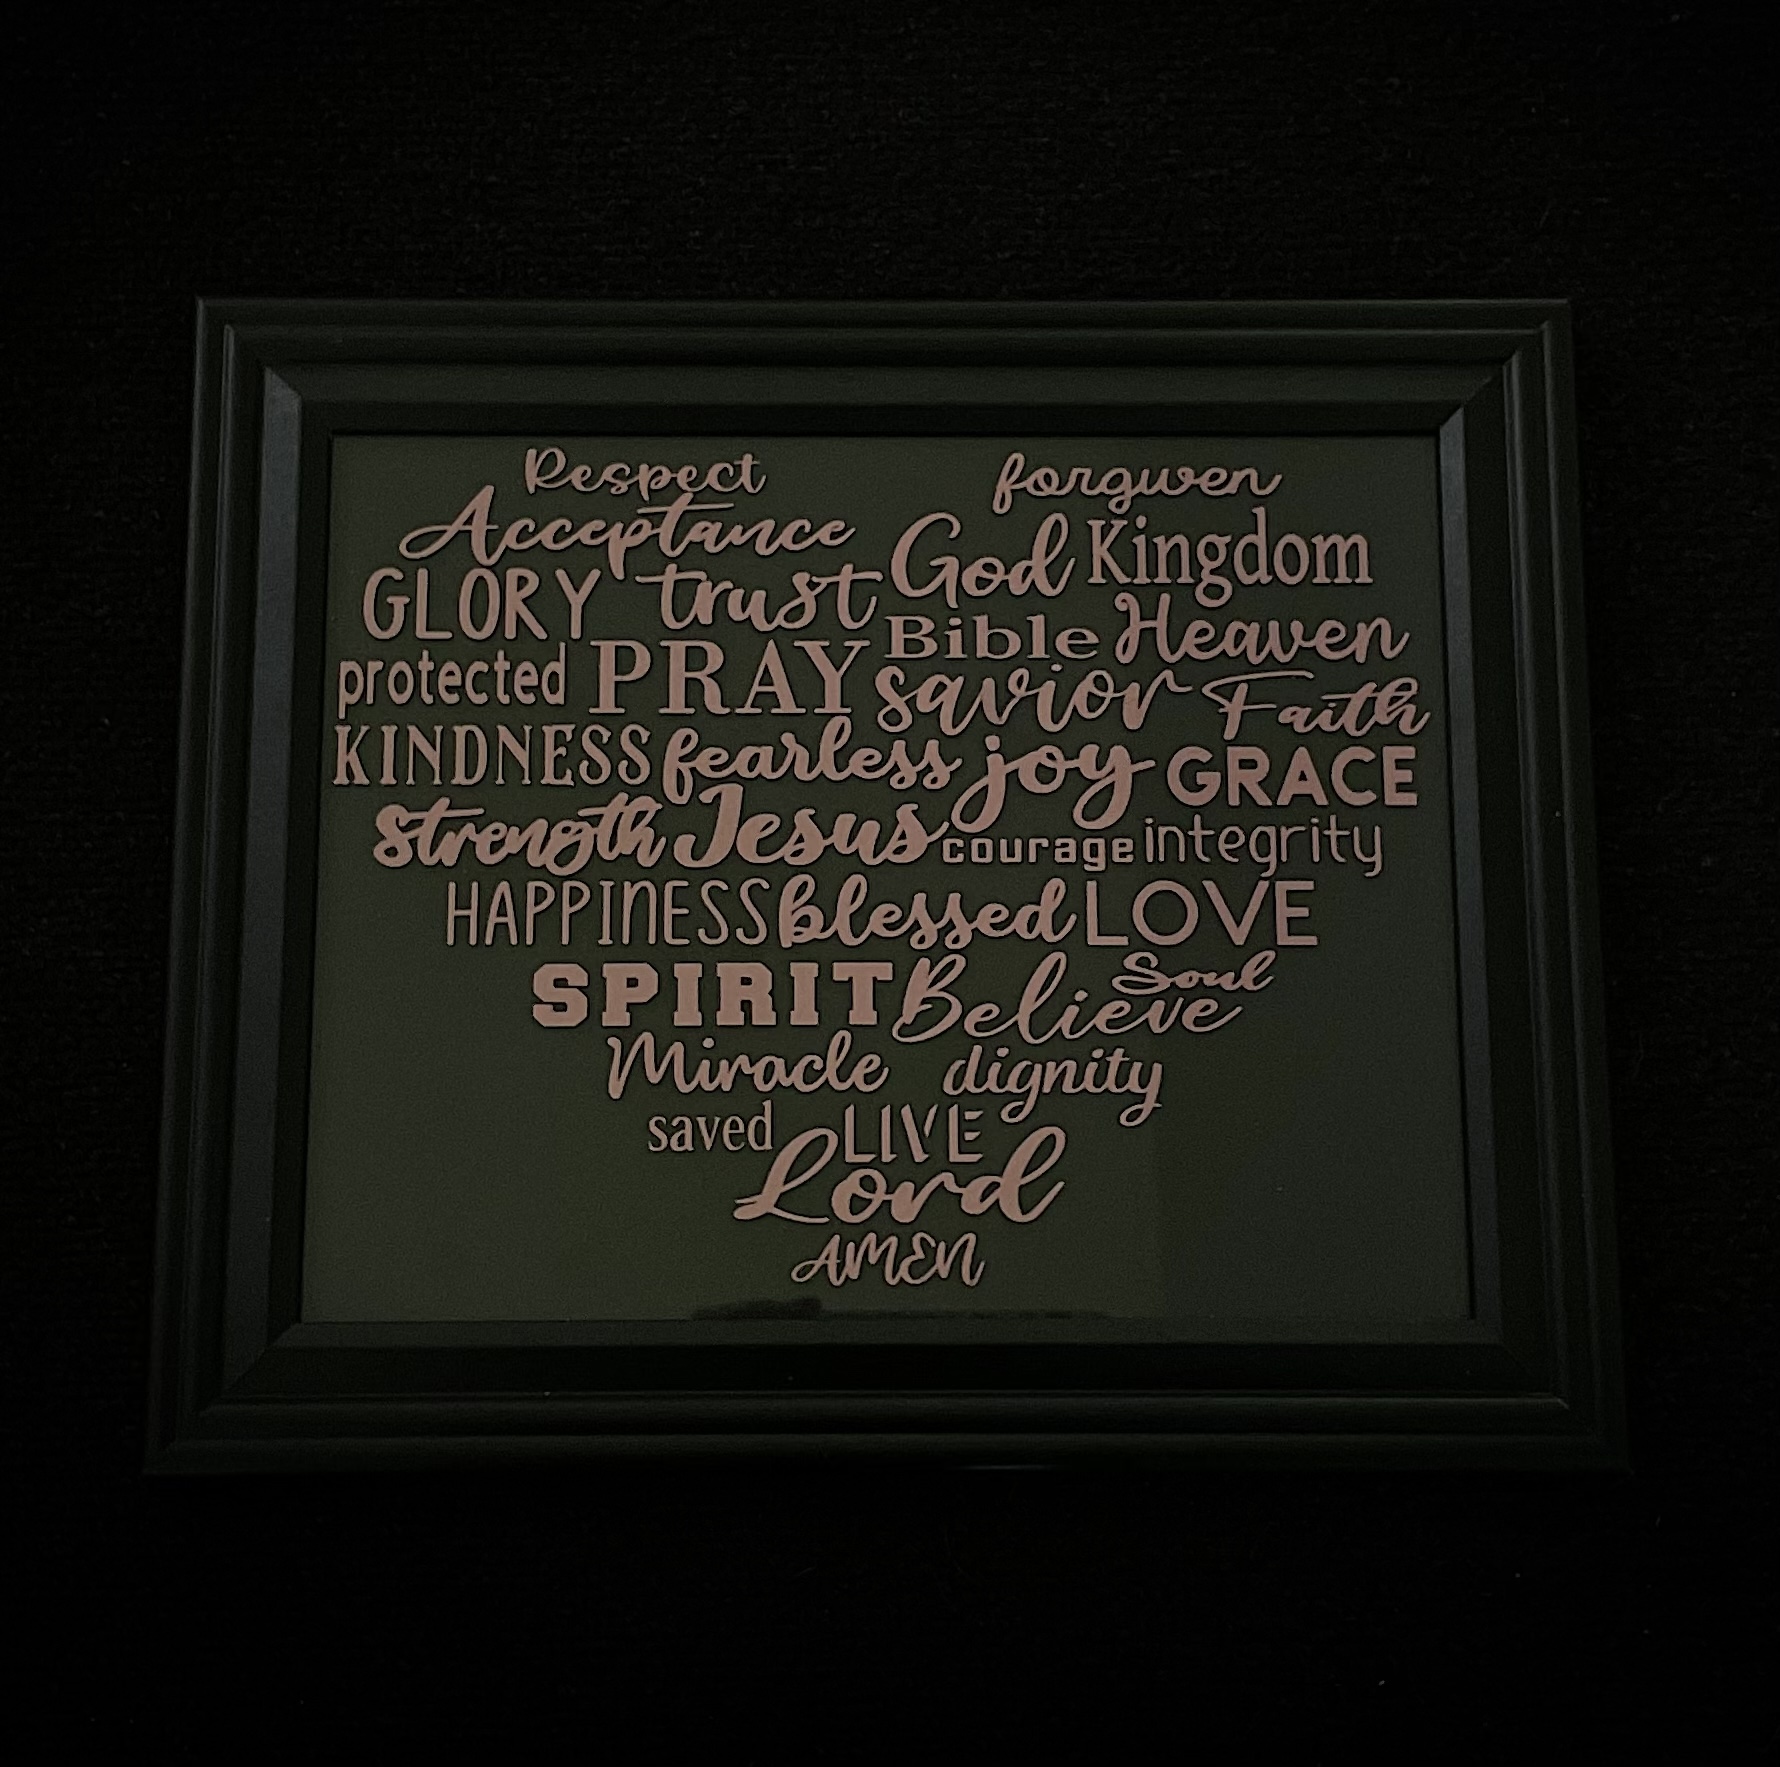 Respect forgiven
Acceptance God Kingdom
GLORY trust Bible Heaven
protected PRAY savior Faith
KINDNESS fearless joy GRACE
Strength Jesus courage integrity
HAPPINESS blessed LOVE
SPIRIT Believe Soul
Miracle dignity
saved LIVE
Lord
AMEN